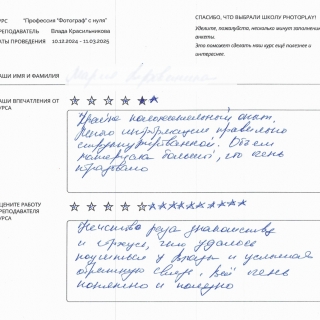 УРС "Профессия "Фотограф" с нуля"
РЕПОДАВАТЕЛЬ Влада Красильникова
АТЫ ПРОВЕДЕНИЯ 10.12.2024 - 11.03.2025
СПАСИБО, ЧТО ВЫБРАЛИ ШКОЛУ PHOTOPLAY!
Уделите, пожалуйста, несколько минут заполнению
анкеты.
Это поможет сделать наш курс ещё полезнее и
интереснее.
АШИ ИМЯ И ФАМИЛИЯ
АШИ ВПЕЧАТЛЕНИЯ ОТ
УРСА
Крайне положительный опыт.
Много информации правильно
структурированной. Объем
материала большой, что очень
порадовало
ЦЕНИТЕ РАБОТУ
РЕПОДАВАТЕЛЯ
УРСА
рада знакомству
и курсу, что удалось
поучиться у Влады и услышав
огромную связь. Всё очень
понятно и полезно